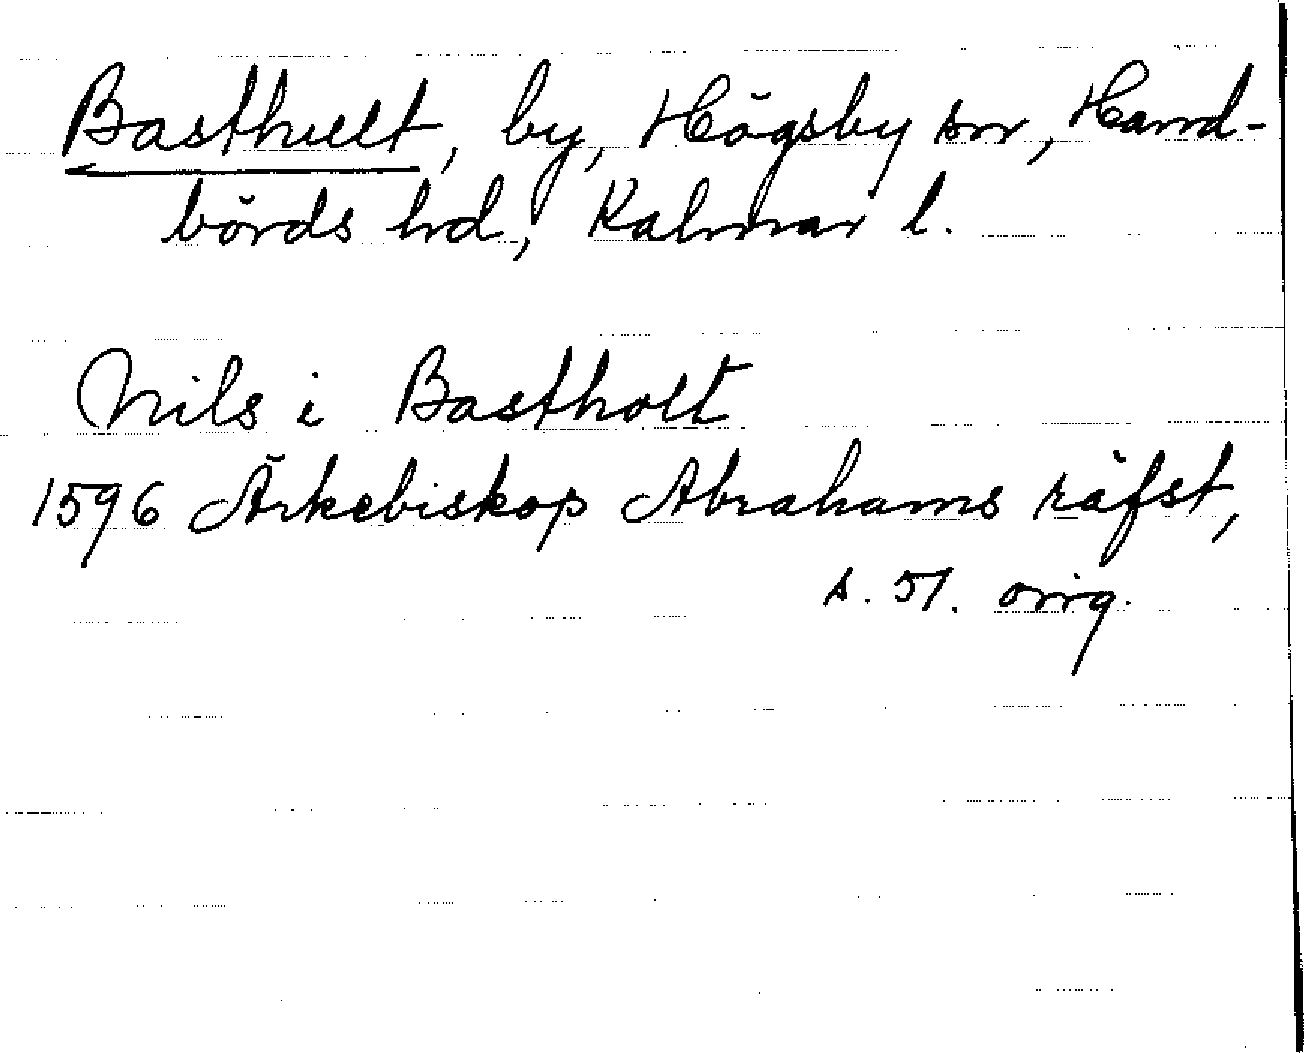 Basthult, by, Högsby sn, Hand-
börds hd, Kalmar l.
Nils i Bastholt
1596 Ärkebiskop Abrahams räfst,
s. 51. orig.